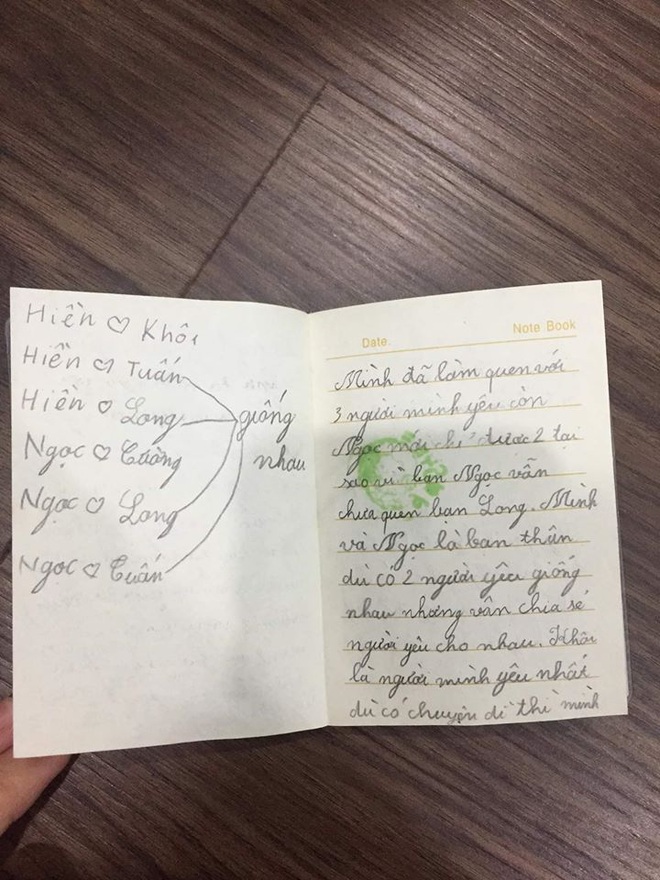 Hiền ♡ Khôi
Hiền ♡ Tuấn
Hiền ♡ Long
giống
nhau
Ngọc ♡ Cường
Ngọc ♡ Long
Ngọc ♡ Tuấn
Date.
Note Book
Mình đã làm quen với
3 người mình yêu còn
Ngọc mới chỉ được 2 tại
sao vì bạn Ngọc vẫn
chưa quen bạn Long. Mình
và Ngọc là bạn thân
dù có 2 người yêu giống
nhau nhưng vẫn chia sẻ
người yêu cho nhau. Khôi
là người mình yêu nhất
dù có chuyện dì thì mình